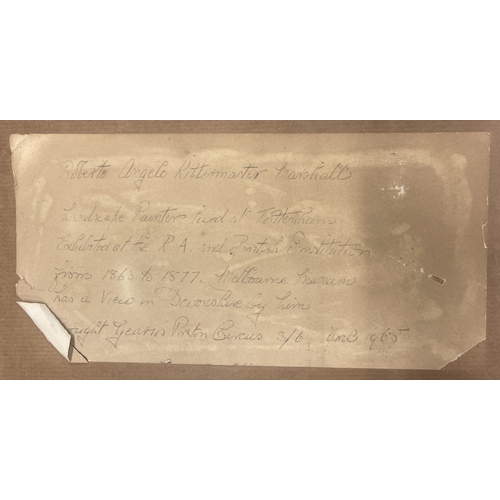 Roberto Angelo Kittermaster Marshall
Landscape Painter lived at Tottenham
Exhibited at the R A. and British Institution
from 1863 to 1877. Melbourne museum
has a View in Devonshire by him
ought Circus 3/6 June 1965